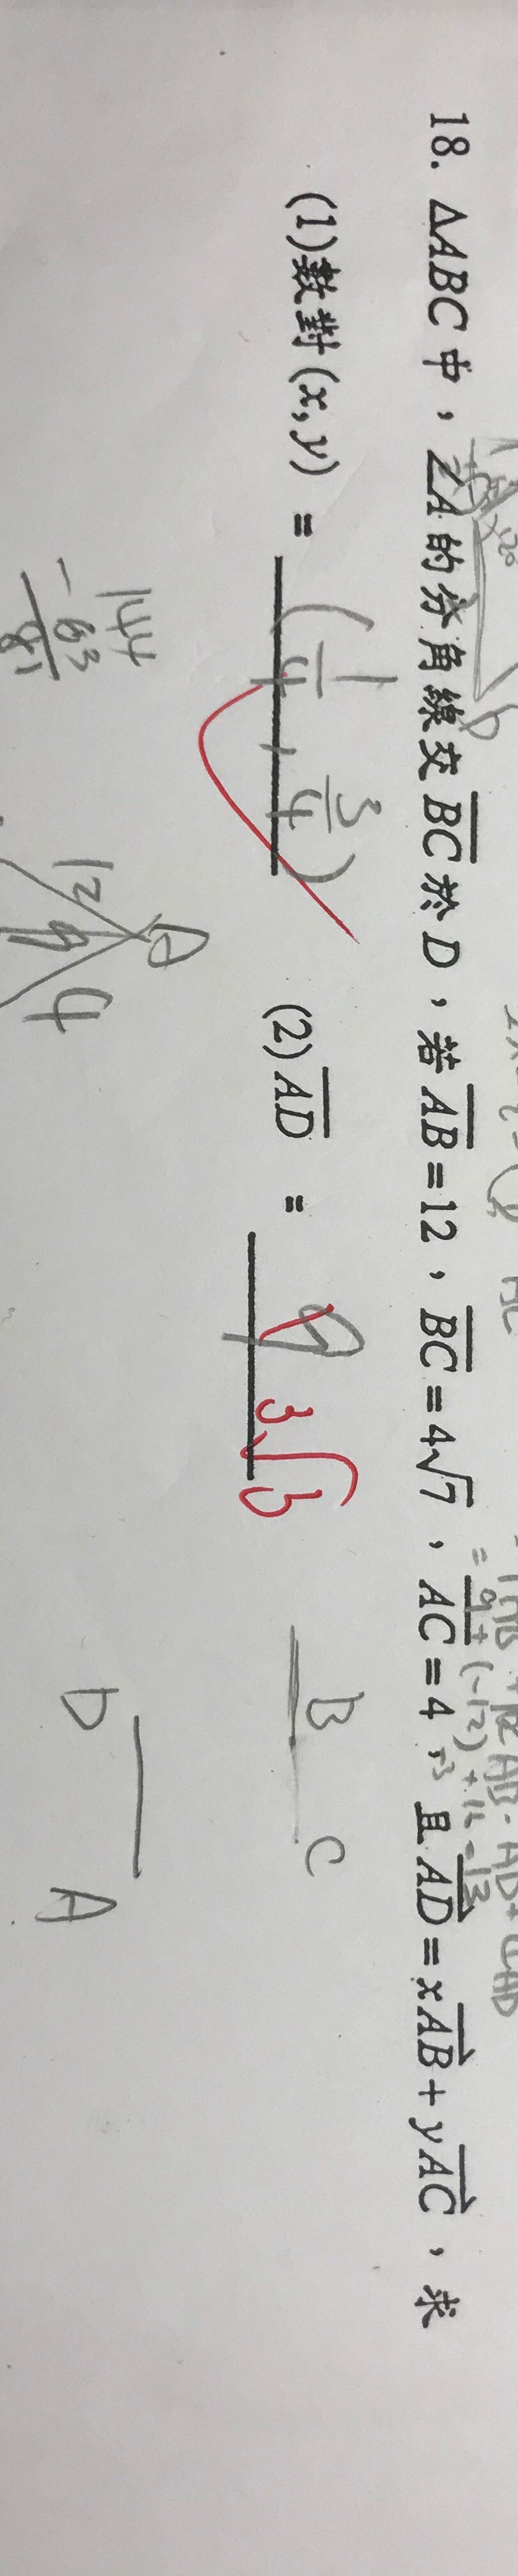 18. △ABC中，∠A的分角線交BC於D，若AB=12，BC=4√7，AC=4，且AD=xAB+yAC，求
(1)數對(x,y) = (1/4, 3/4) (2)AD = 9 3√3
= 9+(-12)+12=13
144
-63
81
A
12
9
4
B C
D A